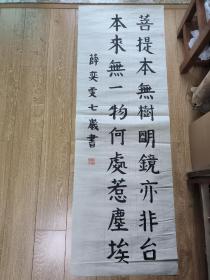 菩提本無樹明鏡亦非台
本來無一物何處惹塵埃
薛奕雯七歲書